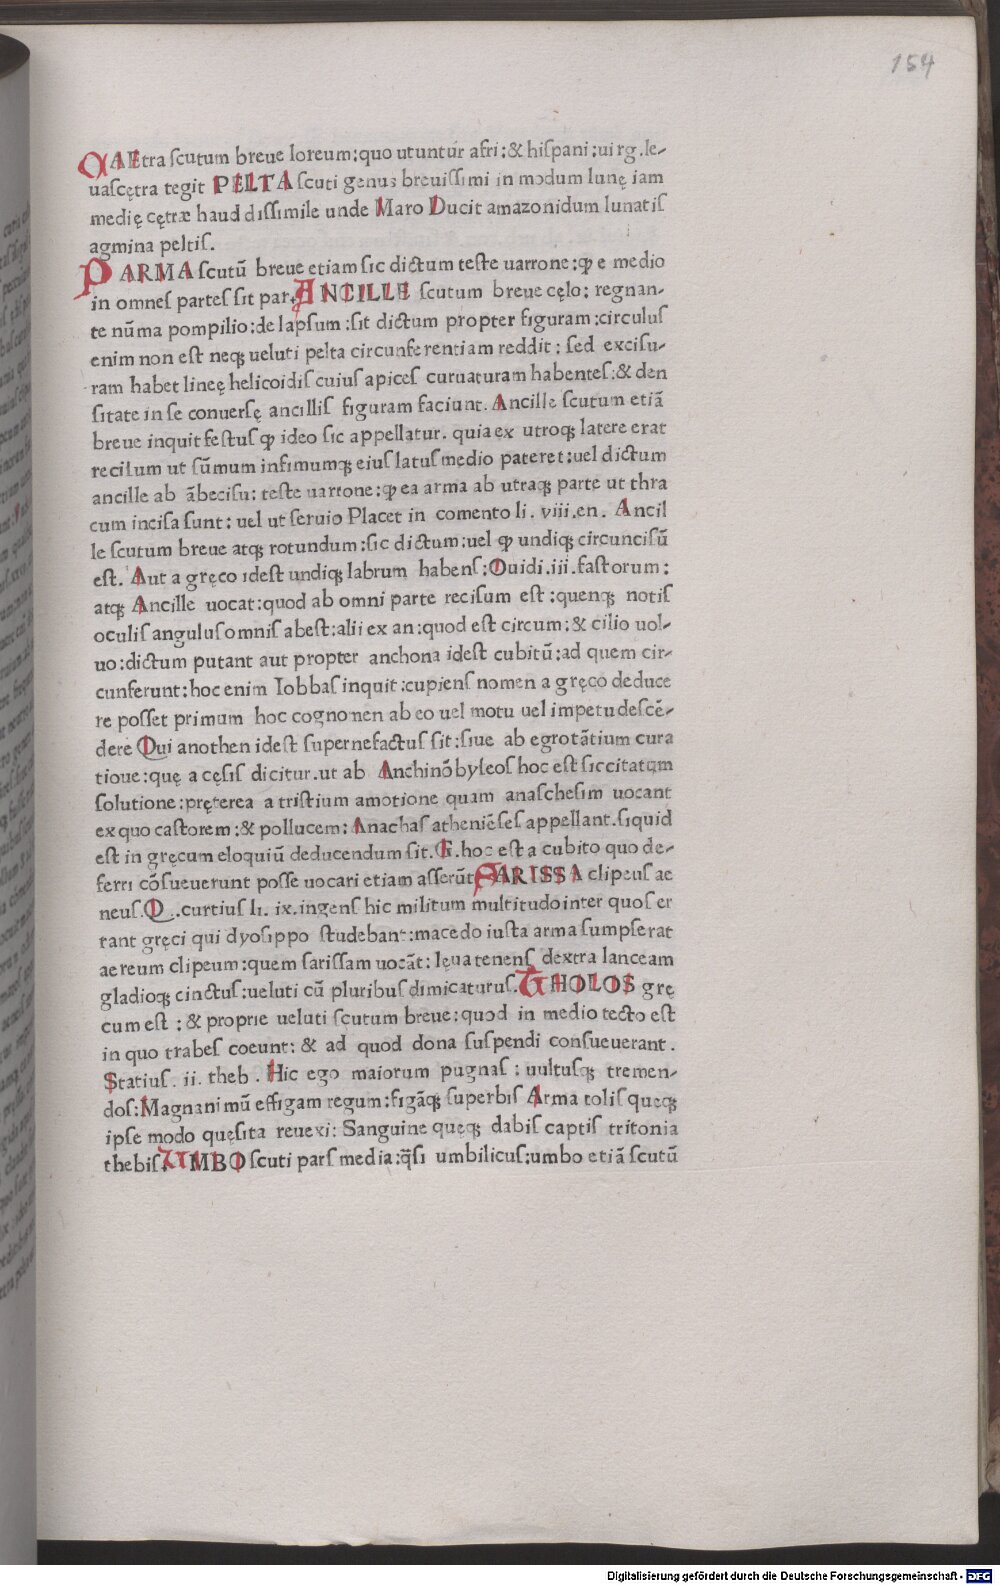 154
CAEtra ſcutum breue loreum:quo utuntur afri:& hiſpani:uirg.le-
uaſcętra tegit PELTA ſcuti genus breuiſſimi in modum lunę iam
medię cętræ haud diſſimile unde Maro Ducit amazonidum lunatiſ
agmina peltiſ.
PARMA ſcutū breue etiam ſic dictum teſte uarrone:ꝙ e medio
in omneſ parteſ ſit par. ANCILLE ſcutum breue cęlo: regnan-
te nūma pompilio:de lapſum:ſit dictum propter figuram:circuluſ
enim non eſt neqꝫ ueluti pelta circunferentiam reddit: ſed exciſu-
ram habet lineę helicoidiſ cuiuſ apiceſ curuaturam habenteſ:& den
ſitate in ſe conuerſę ancilliſ figuram faciunt. Ancille ſcutum etiā
breue inquit feſtuſ ꝙ ideo ſic appellatur. quia ex utroqꝫ latere erat
reciſum ut ſūmum infimumqꝫ eiuſ latuſ medio pateret:uel dictum
ancille ab ābeciſu: teſte uarrone:ꝙ ea arma ab utraqꝫ parte ut thra
cum inciſa ſunt: uel ut ſeruio Placet in comento li. viii.en. Ancil
le ſcutum breue atqꝫ rotundum:ſic dictum:uel ꝙ undiqꝫ circunciſū
eſt. Aut a gręco ideſt undiqꝫ labrum habenſ:Ouidi.iii.faſtorum:
atqꝫ Ancille uocat:quod ab omni parte reciſum eſt:quenqꝫ notiſ
oculiſ anguluſ omniſ abeſt:alii ex an:quod eſt circum:& cilio uol-
uo:dictum putant aut propter anchona ideſt cubitū:ad quem cir-
cunferunt:hoc enim Iobbaſ inquit:cupienſ nomen a gręco deduce
re poſſet primum hoc cognonen ab eo uel motu uel impetu deſcē-
dere Qui anothen ideſt ſupernefactuſ ſit:ſiue ab egrotātium cura
tioue:quę a cęſiſ dicitur.ut ab Anchinōbyſeoſ hoc eſt ſiccitatum
ſolutione:pręterea a triſtium amotione quam anaſcheſim uocant
ex quo caſtorem:& pollucem: Anachaſ atheniēſeſ appellant.ſiquid
eſt in gręcum eloquiū deducendum ſit. E.hoc eſt a cubito quo de-
ferri cōſueuerunt poſſe uocari etiam aſſerūt SARISSA clipeuſ ae
neuſ.Q..curtiuſ li. ix.ingenſ hic militum multitudo inter quoſ er
rant gręci qui dyoſippo ſtudebant:macedo iuſta arma ſumpſerat
aereum clipeum:quem ſariſſam uocāt: lęua tenenſ dextra lanceam
gladioqꝫ cinctuſ:ueluti cū pluribuſ dimicaturuſ. THOLOS grę
cum eſt : & proprie ueluti ſcutum breue:quod in medio tecto eſt
in quo trabeſ coeunt: & ad quod dona ſuſpendi conſueuerant.
Statiuſ. ii. theb . Hic ego maiorum pugnaſ : uultuſqꝫ tremen-
doſ:Magnanimū effigam regum:figāqꝫ ſuperbiſ Arma toliſ queqꝫ
ipſe modo quęſita reuexi: Sanguine quęqꝫ dabiſ captiſ tritonia
thebiſ. UMBO ſcuti parſ media:q̄ſi umbilicuſ:umbo etiā ſcutū
Digitalisierung gefördert durch die Deutsche Forschungsgemeinschaft - DFG